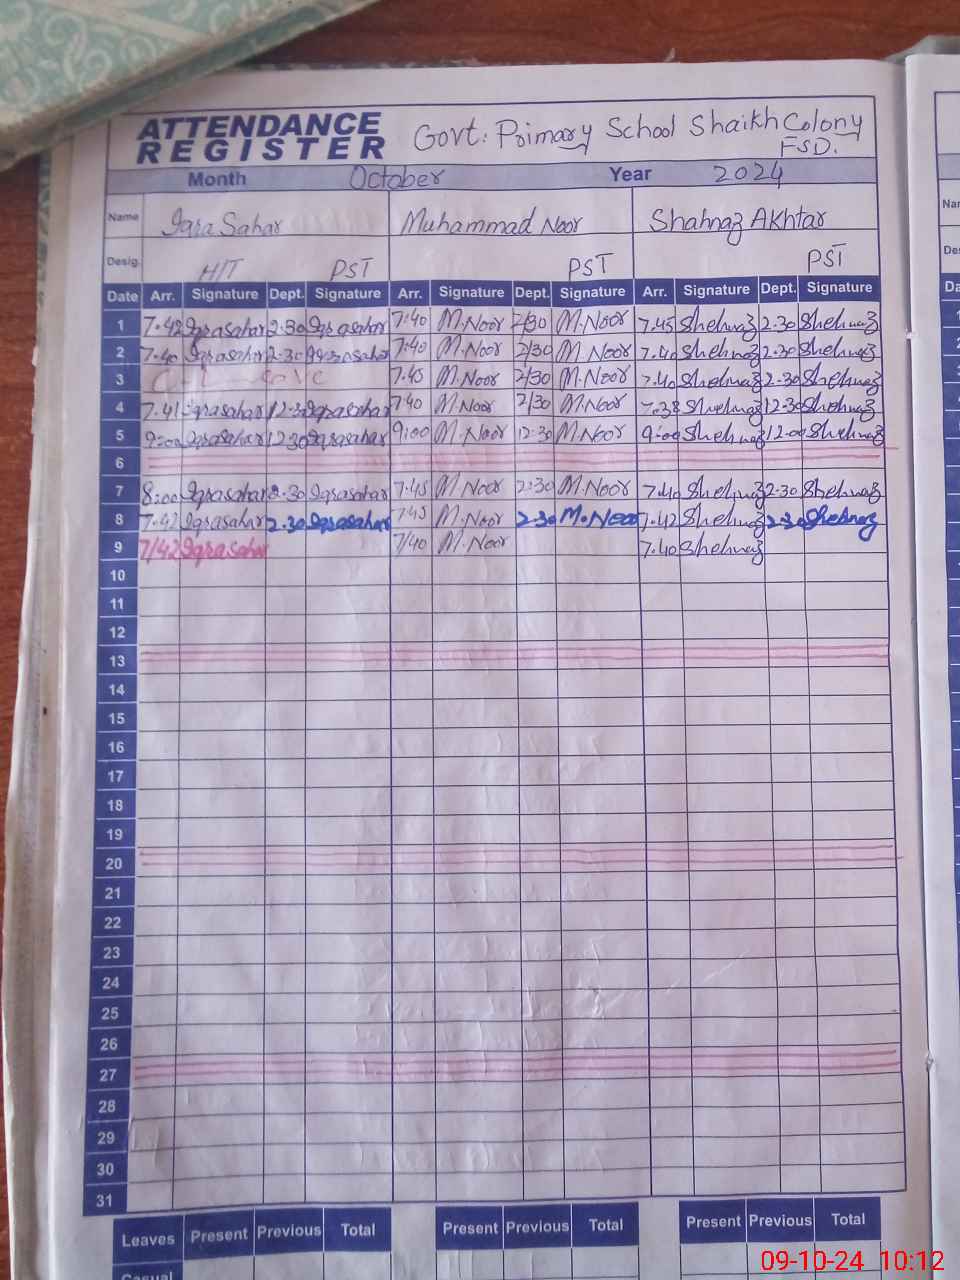 ATTENDANCE REGISTER
Govt: Primary School Shaikh Colony
FSD.
Month October Year 2024
Name Iqra Sahar Muhammad Noor Shahnaz Akhtar
Desig. H/T PST PST PST
Date Arr. Signature Dept. Signature Arr. Signature Dept. Signature Arr. Signature Dept. Signature
1 7.42 Iqrasahar 2.30 Iqrasahar 7.40 M.Noor 2/30 M.Noor 7.45 Shehnaz 2.30 Shehnaz
2 7.40 Iqrasahar 2.30 Iqrasahar 7.40 M.Noor 2/30 M.Noor 7.40 Shehnaz 2.30 Shehnaz
3 7.45 M.Noor 2/30 M.Noor 7.40 Shehnaz 2.30 Shehnaz
4 7.41 Iqrasahar 12.30 Iqrasahar 7.40 M.Noor 2/30 M.Noor 7.38 Shehnaz 12.30 Shehnaz
5 9:00 Iqrasahar 12.30 Iqrasahar 9:00 M.Noor 12.30 M.Noor 9:00 Shehnaz 12.00 Shehnaz
6
7 8:00 Iqrasahar 2.30 Iqrasahar 7.45 M.Noor 2:30 M.Noor 7.40 Shehnaz 2.30 Shehnaz
8 7.42 Iqrasahar 2.30 Iqrasahar 7.45 M.Noor 2.30 M.Noor 7.42 Shehnaz 2.30 Shehnaz
9 7/42 Iqrasahar 7/40 M.Noor 7.40 Shehnaz
10
11
12
13
14
15
16
17
18
19
20
21
22
23
24
25
26
27
28
29
30
31
Leaves Present Previous Total Present Previous Total Present Previous Total
Casual
09-10-24 10:12